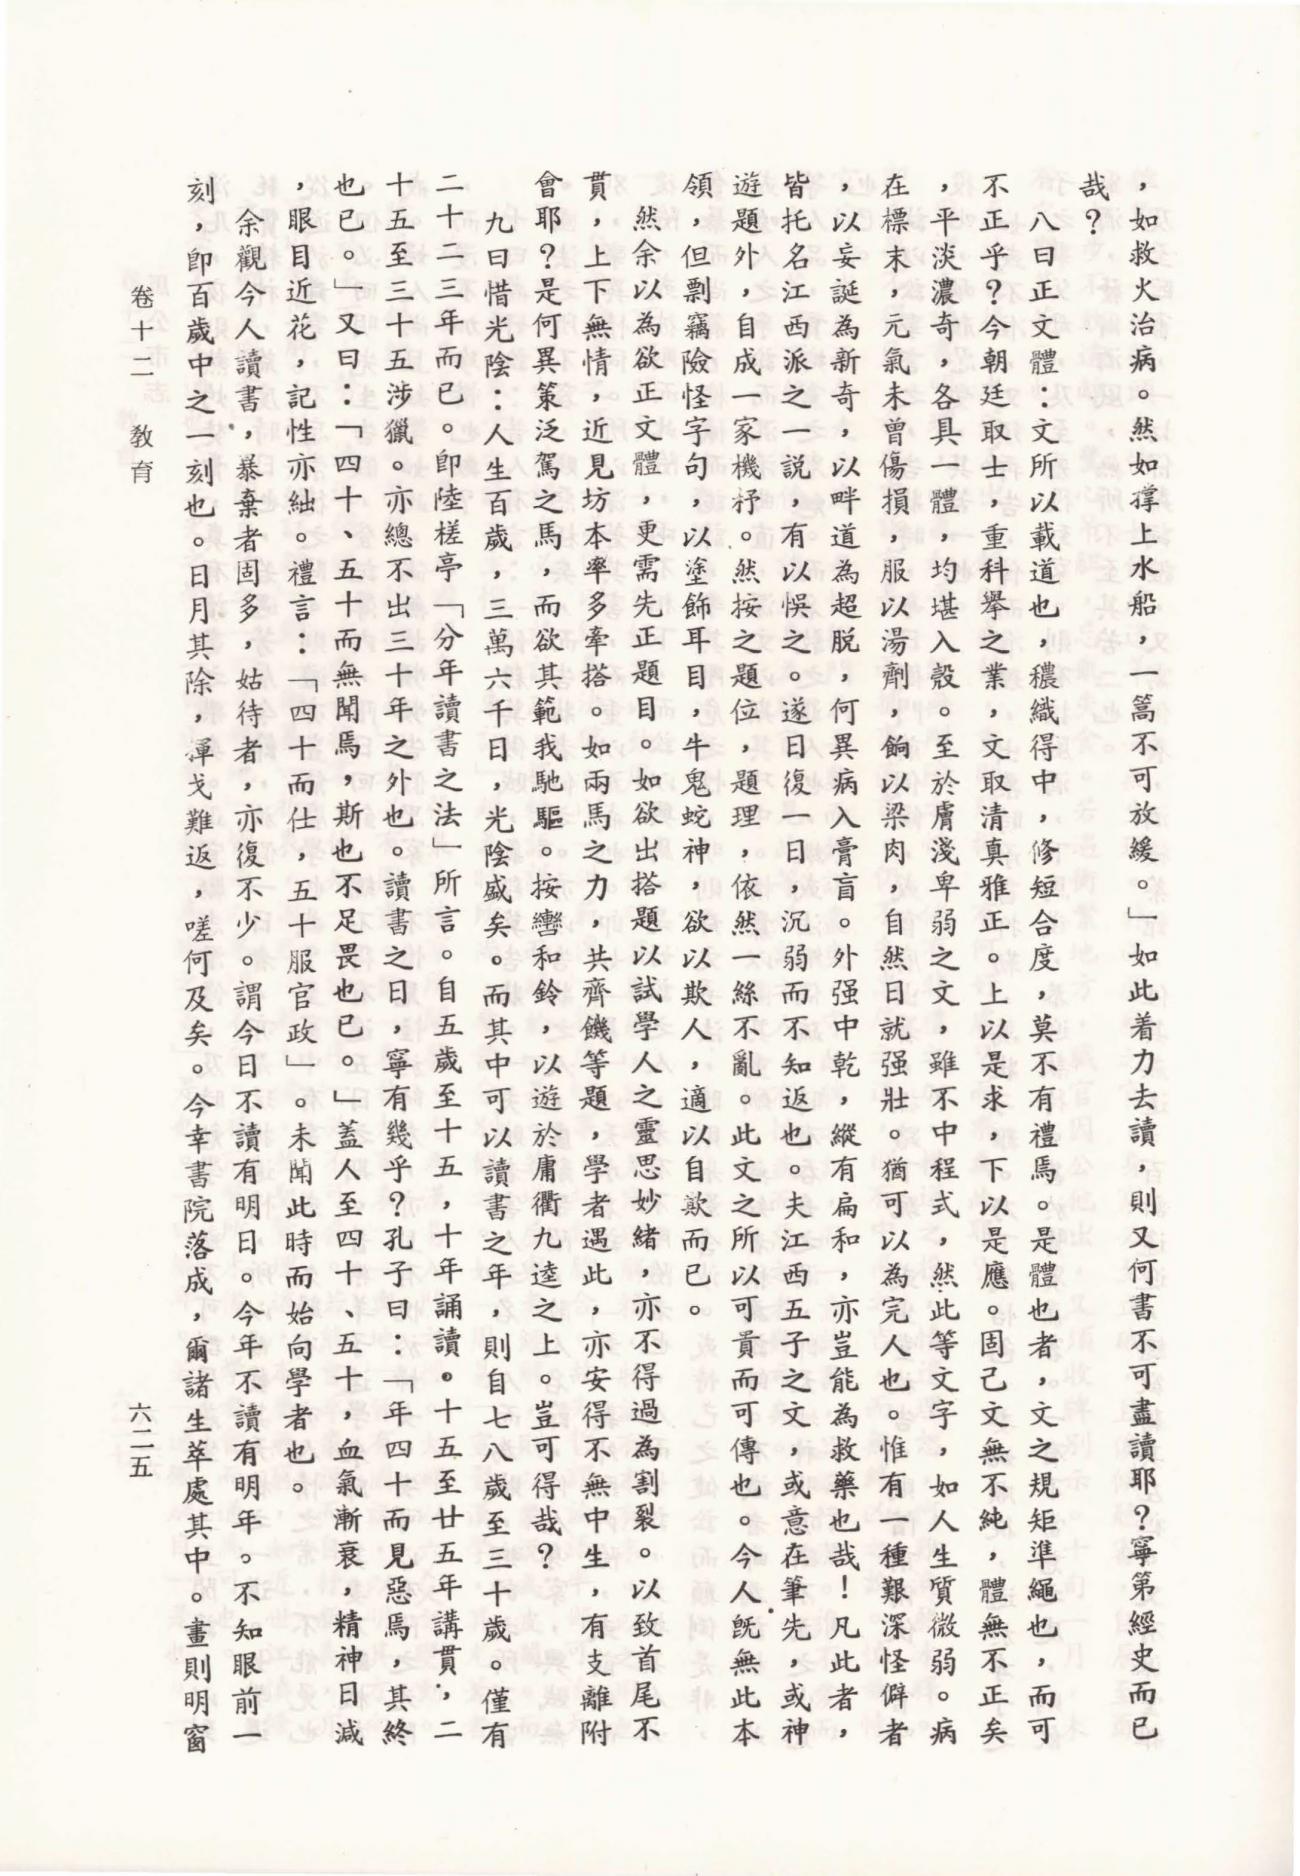 ，如救火治病。然如撑上水船，一篙不可放緩。」如此着力去讀，則又何書不可盡讀耶？寧第經史而已
哉？
八曰正文體：文所以載道也，穠織得中，修短合度，莫不有禮焉。是體也者，文之規矩準繩也，而可
不正乎？今朝廷取士，重科舉之業，文取清真雅正。上以是求，下以是應。固己文無不純，體無不正矣
，平淡濃奇，各具一體，均堪入彀。至於膚淺卑弱之文，雖不中程式，然此等文字，如人生質微弱。病
在標末，元氣未曾傷損，服以湯劑，餉以梁肉，自然日就强壯。猶可以為完人也。惟有一種艱深怪僻者
，以妄誕為新奇，以畔道為超脱，何異病入膏盲。外强中乾，縱有扁和，亦豈能為救藥也哉！凡此者，
皆托名江西派之一説，有以悞之。遂日復一日，沉弱而不知返也。夫江西五子之文，或意在筆先，或神
遊題外，自成一家機抒。然按之題位，題理，依然一絲不亂。此文之所以可貴而可傳也。今人旣無此本
領，但剽竊險怪字句，以塗飾耳目，牛鬼蛇神，欲以欺人，適以自欺而已。
然余以為欲正文體，更需先正題目。如欲出搭題以試學人之靈思妙緒，亦不得過為割裂。以致首尾不
貫，上下無情，近見坊本率多牽搭。如兩馬之力，共齊饑等題，學者遇此，亦安得不無中生，有支離附
會耶？是何異策泛駕之馬，而欲其範我馳驅。按轡和鈴，以遊於庸衢九逵之上。豈可得哉？
九曰惜光陰：人生百歲，三萬六千日，光陰盛矣。而其中可以讀書之年，則自七八歲至三十歲。僅有
二十二三年而已。卽陸槎亭「分年讀書之法」所言。自五歲至十五，十年誦讀。十五至廿五年講貫，二
十五至三十五涉獵。亦總不出三十年之外也。讀書之日，寧有幾乎？孔子曰：「年四十而見惡焉，其終
也已。」又曰：「四十、五十而無聞焉，斯也不足畏也已。」蓋人至四十、五十，血氣漸衰，精神日減
，眼目近花，記性亦絀。禮言：「四十而仕，五十服官政」。未聞此時而始向學者也。
余觀今人讀書，暴棄者固多，姑待者，亦復不少。謂今日不讀有明日。今年不讀有明年。不知眼前一
刻，卽百歲中之一刻也。日月其除，渾戈難返，嗟何及矣。今幸書院落成，爾諸生萃處其中。晝則明窗
卷十二　教育
六二五